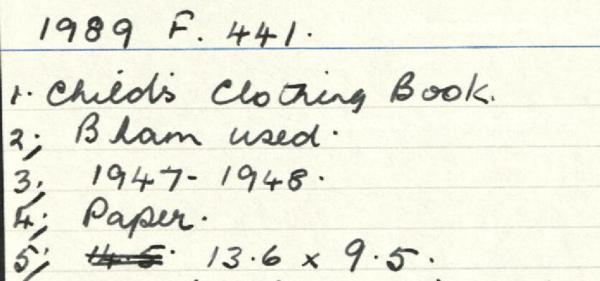 1989 F. 441.
1. Child's Clothing Book.
2; B'ham used.
3; 1947- 1948.
4; Paper.
5; 14.5. 13.6 x 9.5.